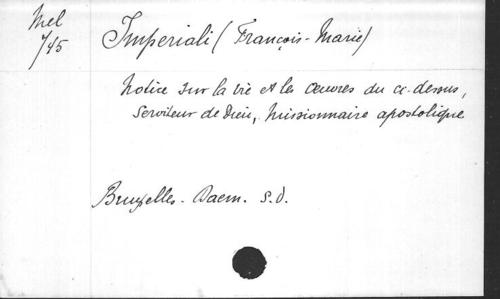 Mel
4/45
Imperiali (François-Marie)
Notice sur la vie et les œuvres du ci-dessus,
Serviteur de Dieu, Missionnaire apostolique
Bruxelles. Daem. S.d.